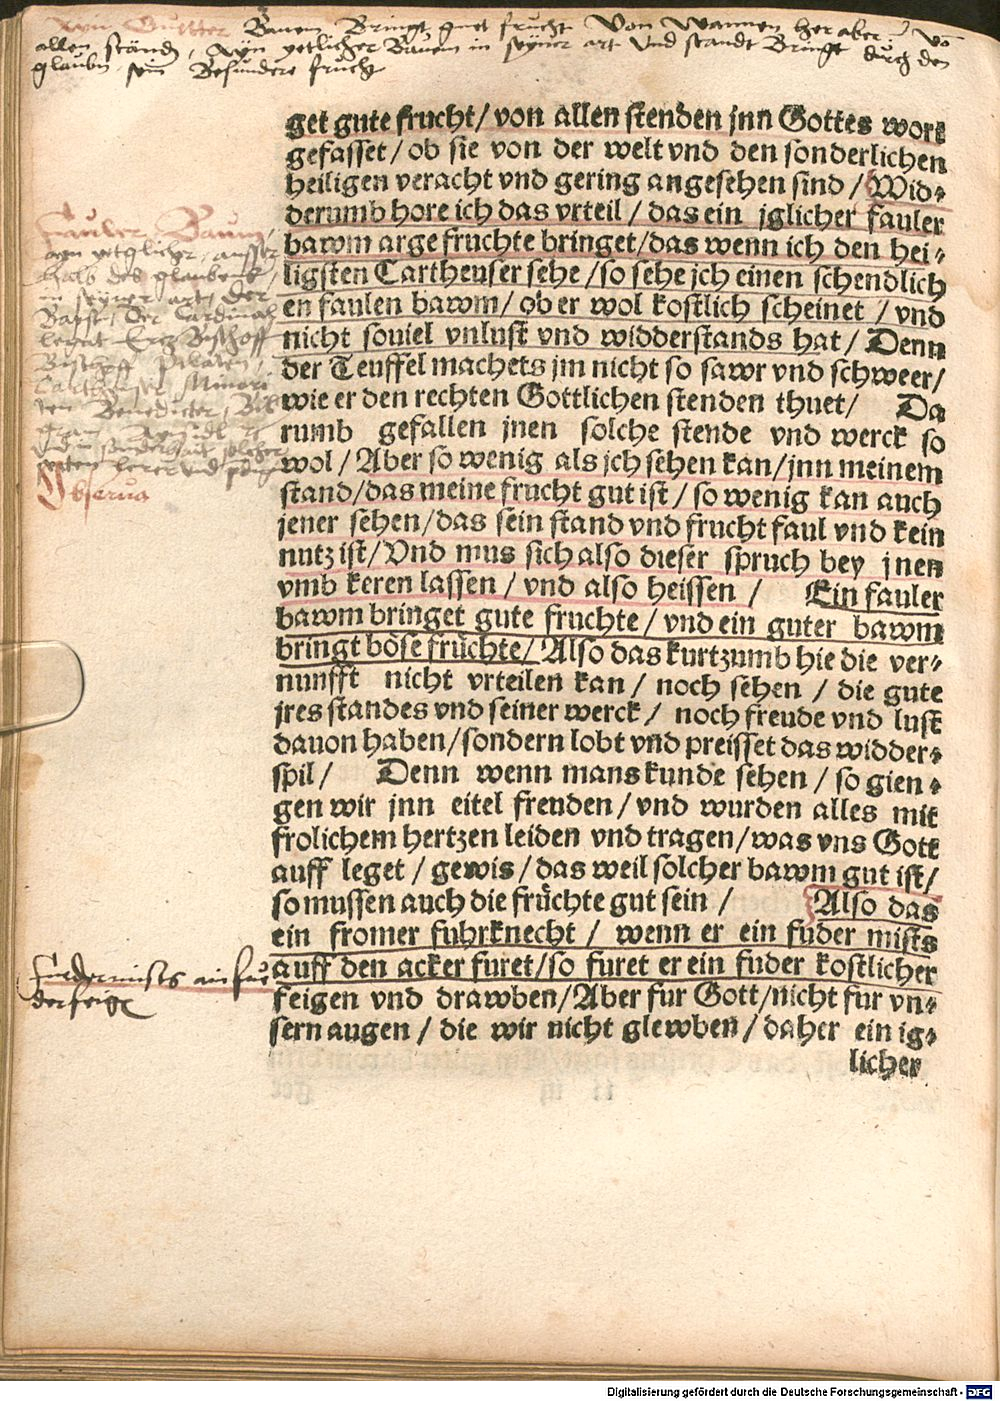 Ayn Guetter Bauem Bringt guet frucht Von Wannen her aber? Võ
allen ständ, Ayn yetlicher Bauem in seyner art Vnd standt Bringt durch den
glaubn sein Besundere frucht
get gute frucht/ von allen stenden jnn Gottes wort
gefasset/ ob sie von der welt vnd den sonderlichen
heiligen veracht vnd gering angesehen sind/ Wid⸗
derumb hore ich das vrteil/ das ein jglicher fauler
bawm arge fruchte bringet/ das wenn ich den hei⸗
ligsten Cartheuser sehe/ so sehe jch einen schendlich
en faulen bawm/ ob er wol kostlich scheinet/ vnd
nicht souiel vnlust vnd widderstands hat/ Denn
der Teuffel machets jm nicht so sawr vnd schweer/
wie er den rechten Gottlichen stenden thuet/ Da
rumb gefallen jnen solche stende vnd werck so
wol/ Aber so wenig als jch sehen kan/ jnn meinem
stand/ das meine frucht gut ist/ so wenig kan auch
jener sehen/ das sein stand vnd frucht faul vnd kein
nutz ist/ Vnd mus sich also dieser spruch bey jnen
vmb keren lassen/ vnd also heissen/ Ein fauler
bawm bringet gute fruchte/ vnd ein guter bawm
bringt böse früchte/ Also das kurtzumb hie die ver⸗
nunfft nicht vrteilen kan/ noch sehen/ die gute
jres standes vnd seiner werck/ noch freude vnd lust
dauon haben/ sondern lobt vnd preisset das widder⸗
spil/ Denn wenn mans kunde sehen/ so gien⸗
gen wir jnn eitel freuden/ vnd wurden alles mit
frolichem hertzen leiden vnd tragen/ was vns Gott
auff leget/ gewis/ das weil solcher bawm gut ist/
so mussen auch die früchte gut sein/ Also das
ein fromer fuhrknecht/ wenn er ein fuder mists
auff den acker furet/ so furet er ein fuder kostlicher
feigen vnd drawben/ Aber fur Gott/ nicht fur vn⸗
sern augen/ die wir nicht glewben/ daher ein ig⸗
licher
Fauler Baum,
ayn yetglicher, ausser
halb des glaubens,
in seyner art, der
Bapst, der Cardinal
legat Ertz Bischoff
Bischoff Prelaten,
Carthewser, Minori
ten Benedicter,
Observa
Fueder mists ain fue
der feigē
Digitalisierung gefördert durch die Deutsche Forschungsgemeinschaft - DFG